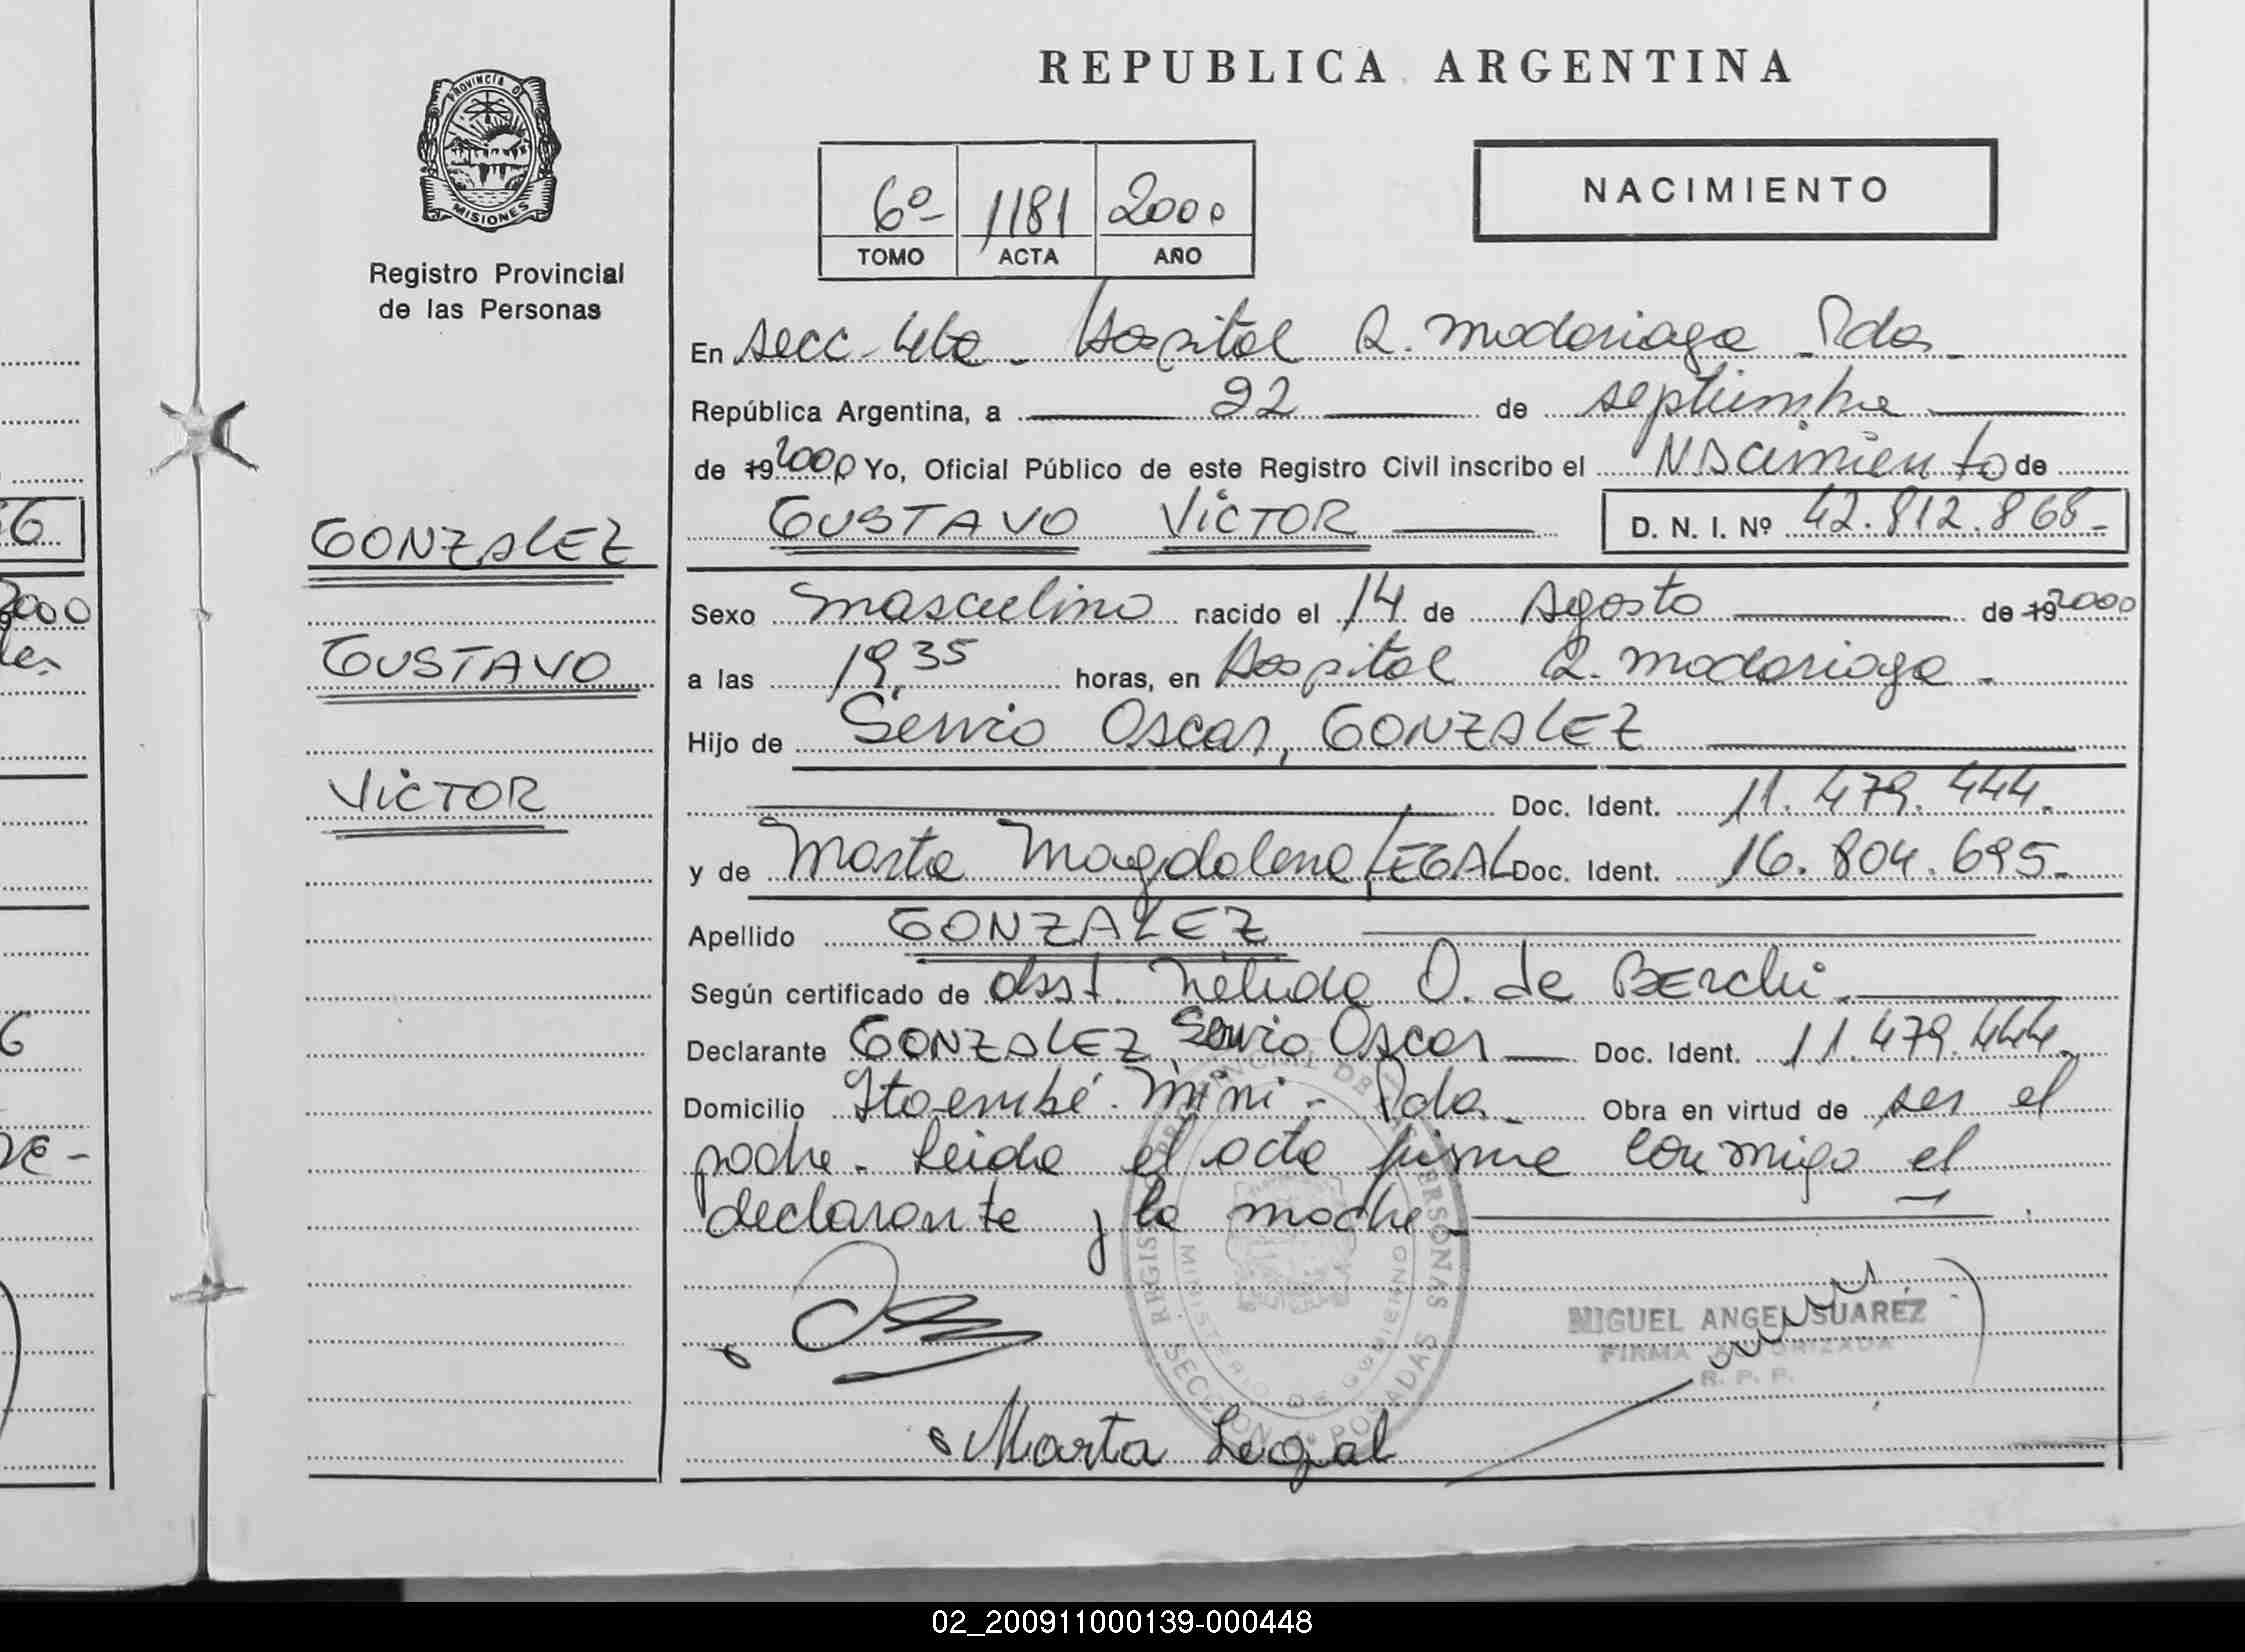 REPUBLICA ARGENTINA
PROVINCIA DE
MISIONES
Registro Provincial
de las Personas
6º-
1181
2000
TOMO
ACTA
AÑO
NACIMIENTO
En secc 4ta - Hospital R. Madariaga - Pdas -
República Argentina, a 22 de septiembre
de 19 2000 Yo, Oficial Público de este Registro Civil inscribo el Nacimiento de
GUSTAVO VICTOR D. N. I. Nº 42.812.868-
GONZALEZ
GUSTAVO
VICTOR
Sexo masculino nacido el 14 de Agosto de 19 2000
a las 19,35 horas, en Hospital R. Madariaga -
Hijo de Servio Oscar, GONZALEZ
Doc. Ident. 11.479.444-
y de Marta Magdalena LEGAL Doc. Ident. 16.804.695-
Apellido GONZALEZ
Según certificado de obst. Nélida O. de BERchi.
Declarante GONZALEZ, Servio Oscar Doc. Ident. 11.479.444-
Domicilio Itaembé-Mini - Pdas - Obra en virtud de ser el
padre. Leida el acta firma conmigo el
declarante y la madre -
REGISTRO PROVINCIAL DE LAS PERSONAS
MINISTERIO DE GOBIERNO
SECCION 4º POSADAS
MIGUEL ANGEL SUAREZ
FIRMA AUTORIZADA
R. P. P.
Marta Legal
02_200911000139-000448